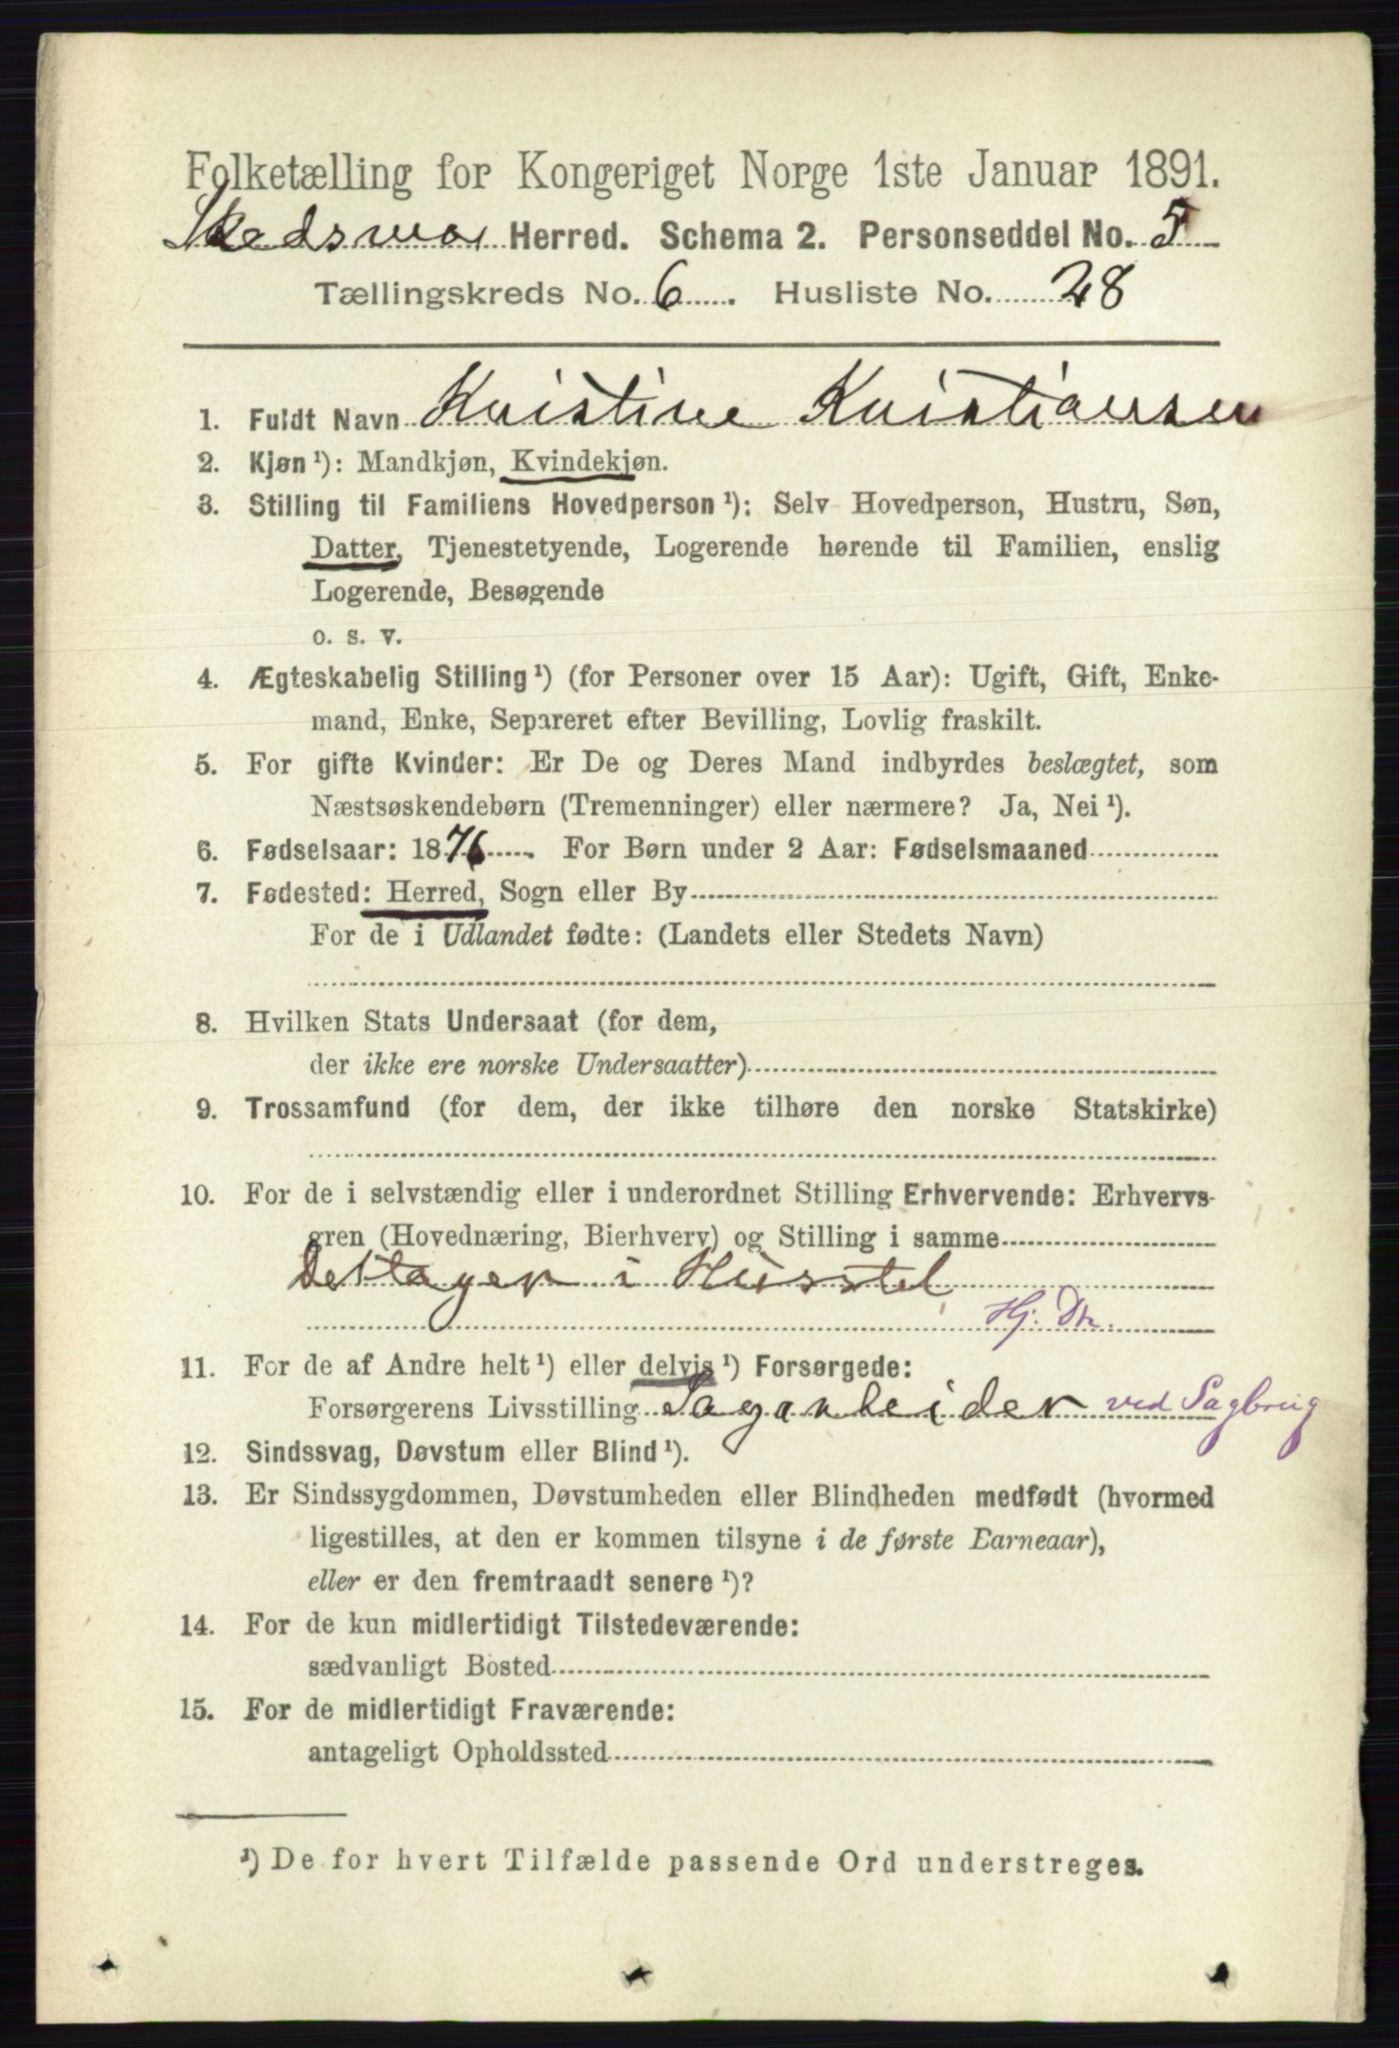 Folketælling for Kongeriget Norge 1ste Januar 1891.
Skedsmo Herred. Schema 2. Personseddel No. 5
Tællingskreds No. 6. Husliste No. 28
1. Fuldt Navn Kristine Kristiansen
2. Kjøn ¹): Mandkjøn, Kvindekjøn.
3. Stilling til Familiens Hovedperson ¹): Selv Hovedperson, Hustru, Søn,
Datter, Tjenestetyende, Logerende hørende til Familien, enslig
Logerende, Besøgende
o. s. v.
4. Ægteskabelig Stilling ¹) (for Personer over 15 Aar): Ugift, Gift, Enke-
mand, Enke, Separeret efter Bevilling, Lovlig fraskilt.
5. For gifte Kvinder: Er De og Deres Mand indbyrdes beslægtet, som
Næstsøskendebørn (Tremenninger) eller nærmere? Ja, Nei ¹).
6. Fødselsaar: 1876. For Børn under 2 Aar: Fødselsmaaned
7. Fødested: Herred, Sogn eller By
For de i Udlandet fødte: (Landets eller Stedets Navn)
8. Hvilken Stats Undersaat (for dem,
der ikke ere norske Undersaatter)
9. Trossamfund (for dem, der ikke tilhøre den norske Statskirke)
10. For de i selvstændig eller i underordnet Stilling Erhvervende: Erhvervs-
gren (Hovednæring, Bierhverv) og Stilling i samme
Deltager i Husstel
Hj. Dtr.
11. For de af Andre helt ¹) eller delvis ¹) Forsørgede:
Forsørgerens Livsstilling Sagarbeider ved Sagbrug
12. Sindssvag, Døvstum eller Blind ¹).
13. Er Sindssygdommen, Døvstumheden eller Blindheden medfødt (hvormed
ligestilles, at den er kommen tilsyne i de første Barneaar),
eller er den fremtraadt senere ¹)?
14. For de kun midlertidigt Tilstedeværende:
sædvanligt Bosted
15. For de midlertidigt Fraværende:
antageligt Opholdssted
¹) De for hvert Tilfælde passende Ord understreges.